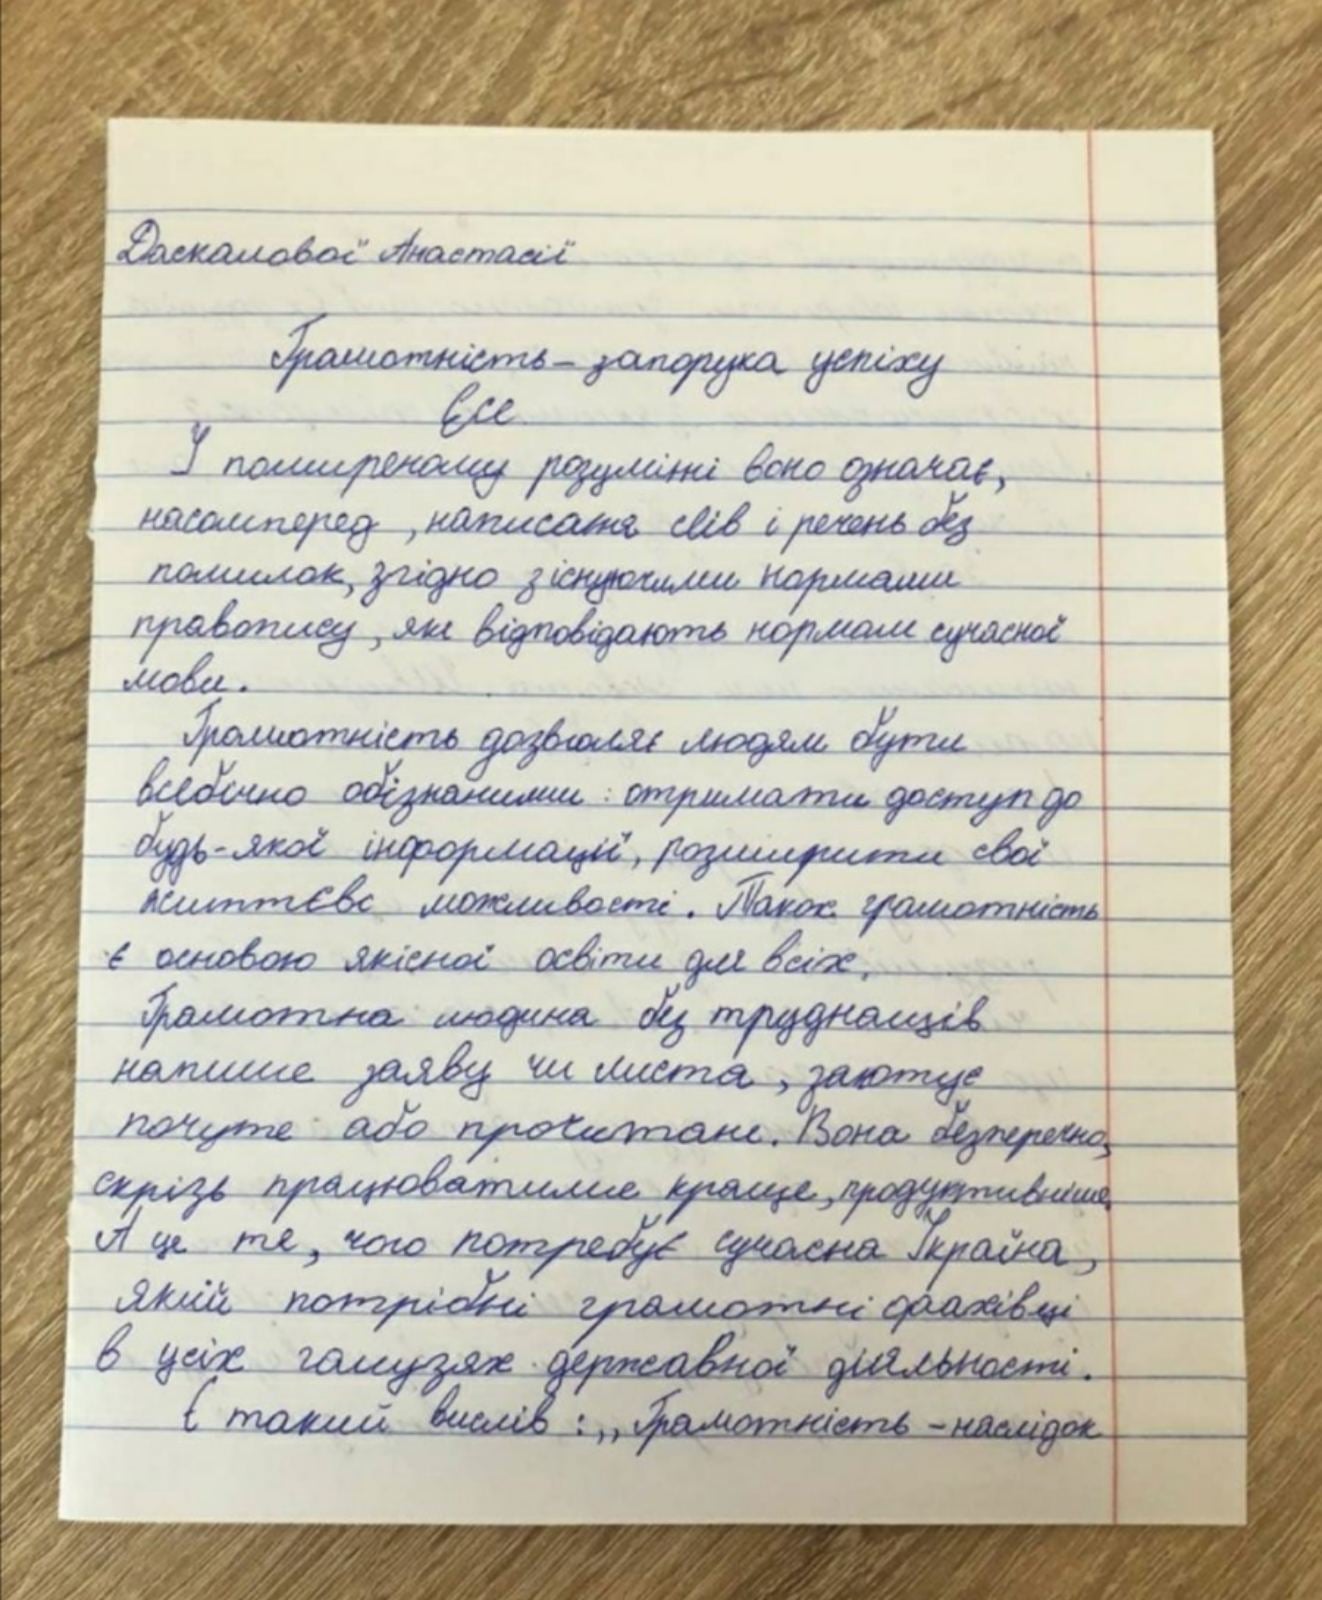 Даскалової Анастасії
Грамотність – запорука успіху
Есе
У поширеному розумінні воно означає,
насамперед, написання слів і речень без
помилок, згідно з існуючими нормами
правопису, які відповідають нормам сучасної
мови.
Грамотність дозволяє людям бути
всебічно обізнаними: отримати доступ до
будь-якої інформації, розширити свої
життєві можливості. Також грамотність
є основою якісної освіти для всіх.
Грамотна людина без труднощів
напише заяву чи листа, занотує
почуте або прочитане. Вона безперечно,
скрізь працюватиме краще, продуктивніше.
А це те, чого потребує сучасна Україна,
якій потрібні грамотні фахівці
в усіх галузях державної діяльності.
Є такий вислів: „Грамотність – наслідок